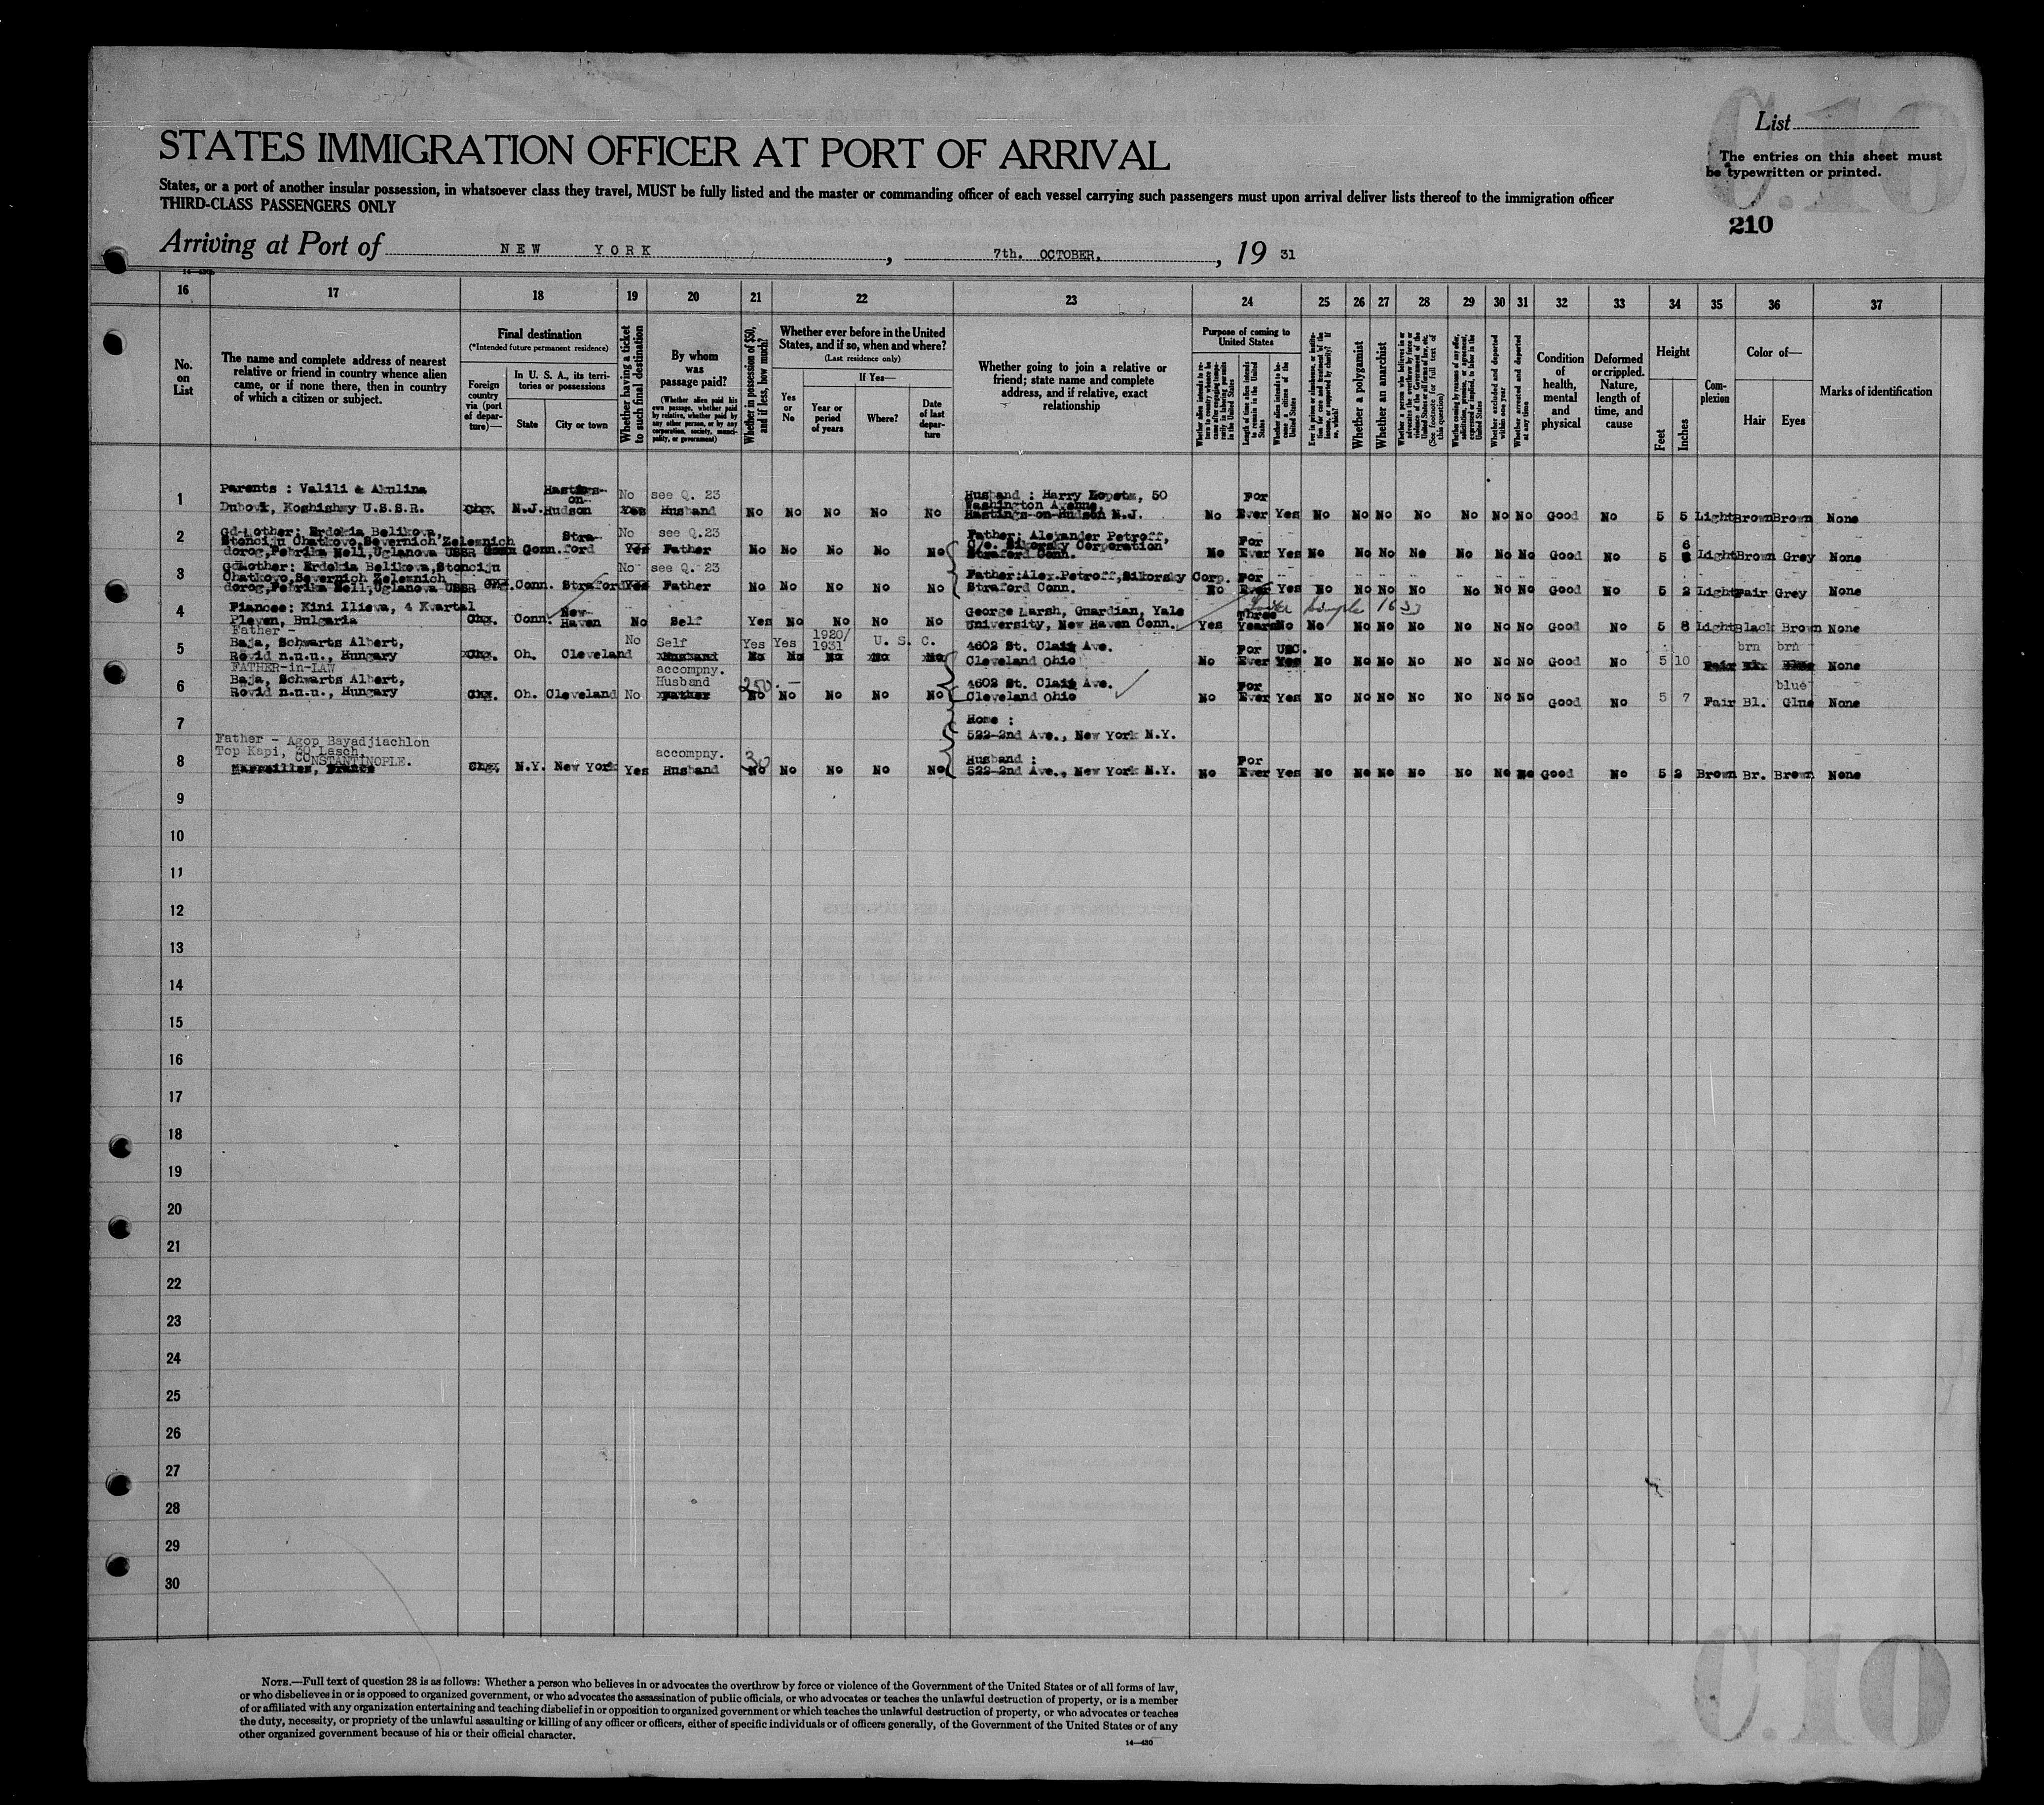 List
C.10
The entries on this sheet must
be typewritten or printed.
210
STATES IMMIGRATION OFFICER AT PORT OF ARRIVAL
States, or a port of another insular possession, in whatsoever class they travel, MUST be fully listed and the master or commanding officer of each vessel carrying such passengers must upon arrival deliver lists thereof to the immigration officer
THIRD-CLASS PASSENGERS ONLY
Arriving at Port of NEW YORK, 7th. OCTOBER, 19 31
16 17 18 19 20 21 22 23 24 25 26 27 28 29 30 31 32 33 34 35 36 37
No. on List
The name and complete address of nearest
relative or friend in country whence alien
came, or if none there, then in country
of which a citizen or subject.
Final destination
(*Intended future permanent residence)
Foreign country via (port of departure)—
In U. S. A., its territories or possessions
State
City or town
Whether having a ticket to such final destination
By whom was passage paid?
(Whether alien paid his own passage, whether paid by relative, whether paid by any other person, or by any corporation, society, municipality, or government)
Whether in possession of $50, and if less, how much?
Whether ever before in the United
States, and if so, when and where?
(Last residence only)
Yes or No
If Yes—
Year or period of years
Where?
Date of last departure
Whether going to join a relative or
friend; state name and complete
address, and if relative, exact
relationship
Purpose of coming to United States
Length of time alien intends to remain in the United States
Whether alien intends to become a citizen of the United States
Whether a polygamist
Whether an anarchist
Whether excluded and deported within one year
Whether arrested and deported at any time
Condition of health, mental and physical
Deformed or crippled. Nature, length of time, and cause
Height
Feet
Inches
Complexion
Color of—
Hair
Eyes
Marks of identification
1 Parents : Valili & Akulina
Hastings-on-Hudson N.J. No see Q. 23 Husband : Harry Lopatz, 50
Washington Avenue,
Dubovi, Koshishmy U.S.S.R. Yes Husband No No No No No Hastings-on-Hudson N.J. No For Ever Yes No No No No No No No Good No 5 5 Light Brown Brown None
2 Gd-Mother: Erdokia Belikova, No see Q.23 Father; Alexander Petroff,
Stonciju Chatkovo, Severnich Zelesnich Stra- C/o. Sikorsky Corporation
dorog, Febrika Nell, Uglanova USSR Conn. ford Yes Father No No No No No Straford Conn. No For Ever Yes No No No No No No No Good No 5 6 Light Brown Grey None
3 Gd-Mother: Erdokia Belikova, Stonciju No see Q. 23
Chatkovo, Severnich Zelesnich Father: Alex.Petroff, Sikorsky Corp.
dorog, Febrika Nell, Uglanova USSR Conn. Straford Yes Father No No No No No Straford Conn. No For Ever Yes No No No No No No No Good No 5 2 Light Fair Grey None
4 Fiancee: Kini Ilieva, 4 Kvartal New- George Marsh, Guardian, Yale
Pleven, Bulgaria Chg. Conn. Haven No Self Yes No No No No University, New Haven Conn. Yes Three Years No No No No No No No No Good No 5 8 Light Black Brown None
5 Father -
Baja, Schwarts Albert, No Self Yes Yes 1920/1931 U. S. C. 4602 St. Clair Ave. For USC. brn brn
Rovid n.u.u., Hungary Chg. Oh. Cleveland Husband No No No No No Cleveland Ohio No Ever Yes No No No No No No No Good No 5 10 Fair None
6 FATHER-in-LAW accompny.
Baja, Schwarts Albert, Husband 250.— 4602 St. Clair Ave. blue
Rovid n.u.u., Hungary Chg. Oh. Cleveland No Father No No No No No Cleveland Ohio No For Ever Yes No No No No No No No Good No 5 7 Fair Bl. None
7 Home :
522-2nd Ave., New York N.Y.
8 Father - Agop Bayadjiachlon
Top Kapi, 30 Lasch, CONSTANTINOPLE. accompny. 30 Husband :
Marseilles, France Chg. N.Y. New York Yes Husband No No No No No 522-2nd Ave., New York N.Y. No For Ever Yes No No No No No No No Good No 5 2 Brown Br. Brown None
9
10
11
12
13
14
15
16
17
18
19
20
21
22
23
24
25
26
27
28
29
30
C.10
NOTE.—Full text of question 28 is as follows: Whether a person who believes in or advocates the overthrow by force or violence of the Government of the United States or of all forms of law,
or who disbelieves in or is opposed to organized government, or who advocates the assassination of public officials, or who advocates or teaches the unlawful destruction of property, or is a member
of or affiliated with any organization entertaining and teaching disbelief in or opposition to organized government or which teaches the unlawful destruction of property, or who advocates or teaches
the duty, necessity, or propriety of the unlawful assaulting or killing of any officer or officers, either of specific individuals or of officers generally, of the Government of the United States or of any
other organized government because of his or their official character.
14—430